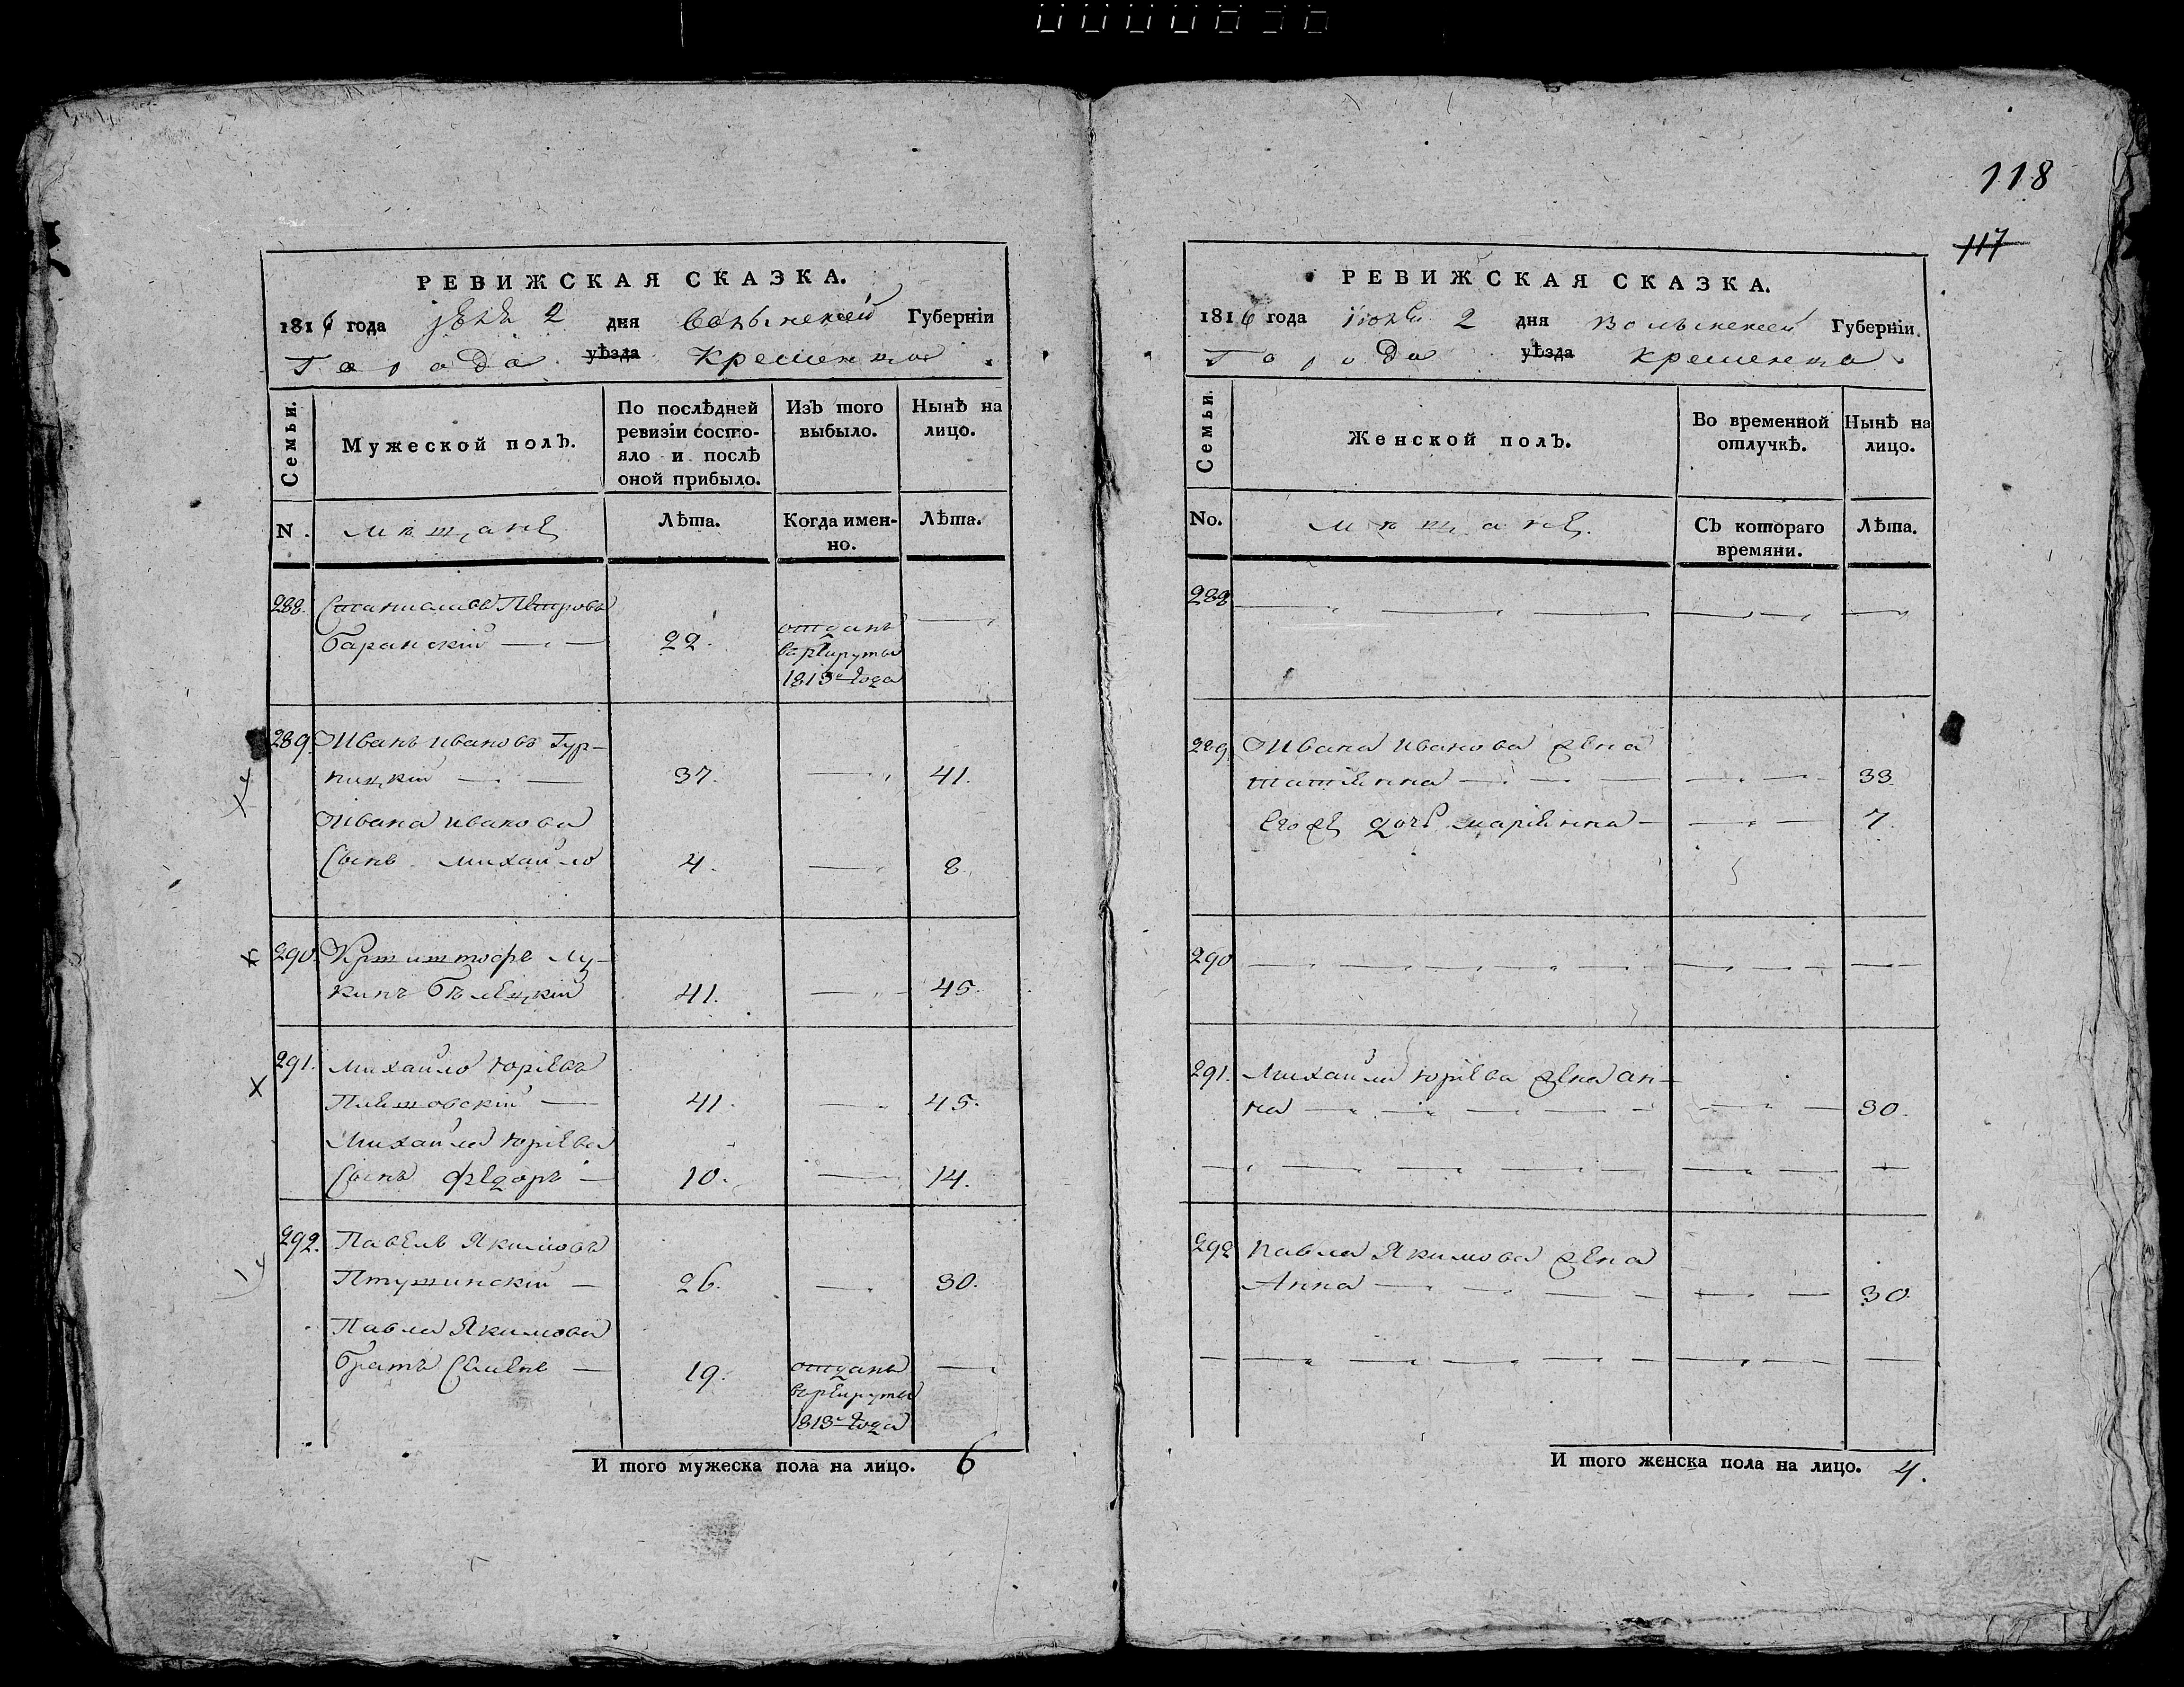 118
117
РЕВИЖСКАЯ СКАЗКА.
1816 года 2 дня волынской Губерніи
Города уѣзда Кременца.
Семьи.
Мужеской полъ.
По послѣдней ревизіи состояло и послѣ оной прибыло.
Изъ того выбыло.
Нынѣ на лицо.
N.
мѣщане
Лѣта.
Когда именно.
Лѣта.
288. Станиславъ Петровъ
Баранскій — 22. отданъ
въ рекруты
1813го года
289. Иванъ Ивановъ Гур-
ницкій — 37. — 41.
Ивана Иванова
Сынъ Михайло 4. — 8.
290. Крштштофъ Лу-
кинъ Бѣлецкій 41. — 45.
291. Михайло Юріевъ
— 41. — 45.
Михайла Юріева
Сынъ Федоръ — 10. — 14.
292. Павелъ Якимовъ
Птушинскій — 26. — 30.
Павла Якимова
братъ Семенъ — 19. отданъ —
въ рекруты
1813го года
И того мужеска пола на лицо. 6
РЕВИЖСКАЯ СКАЗКА.
1816 года Іюня 2 дня Волынской Губерніи.
Города уѣзда Кременца.
Семьи.
Женской полъ.
Во временной отлучкѣ.
Нынѣ на лицо.
No.
мѣщане.
Съ котораго времяни.
Лѣта.
288
289 Ивана Иванова жена
татіянна — — 33
Егоже дочь маріянна — — 7.
290
291. Михайла Юріева жена ан-
на — — 30.
292 Павла Якимова жена
Анна — — 30.
И того женска пола на лицо. 4.